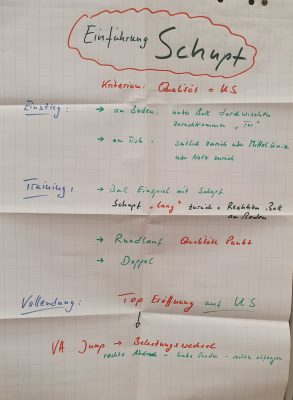 Einführung Schupf
Kriterium: Qualität = US
Einstieg: → am Boden: unter Ball durchwischen
zurückkommen "Tor"
→ am Tisch: seitlich zurück über Mittellinie
über Netz zurück
Training: → Ball Einspiel mit Schupf
Schupf "lang" zurück = Reaktion Ball
am Boden
→ Rundlauf Qualitäts Punkt
→ Doppel
Vollendung: Top Eröffnung auf US
VH Jump → Belastungswechsel
rechts Abdruck - links landen - rechts abfangen